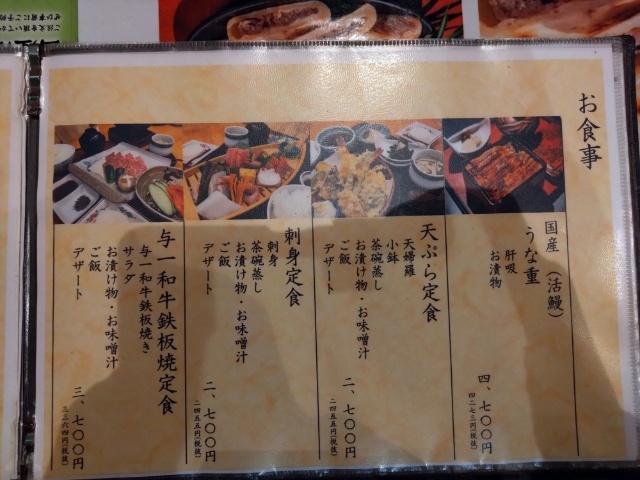 お食事
国産（活鰻）
うな重
肝吸
お漬物
四、七〇〇円
四二七三円(税抜)
天ぷら定食
天婦羅
小鉢
茶碗蒸し
お漬け物・お味噌汁
ご飯
デザート
二、七〇〇円
二四五五円(税抜)
刺身定食
刺身
茶碗蒸し
お漬け物・お味噌汁
ご飯
デザート
二、七〇〇円
二四五五円(税抜)
与一和牛鉄板焼定食
与一和牛鉄板焼き
サラダ
お漬け物・お味噌汁
ご飯
デザート
三、七〇〇円
三三六四円(税抜)